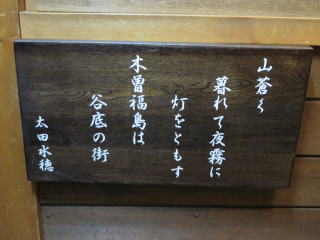 山蒼く
暮れて夜霧に
灯をともす
木曽福島は
谷底の街
太田水穂